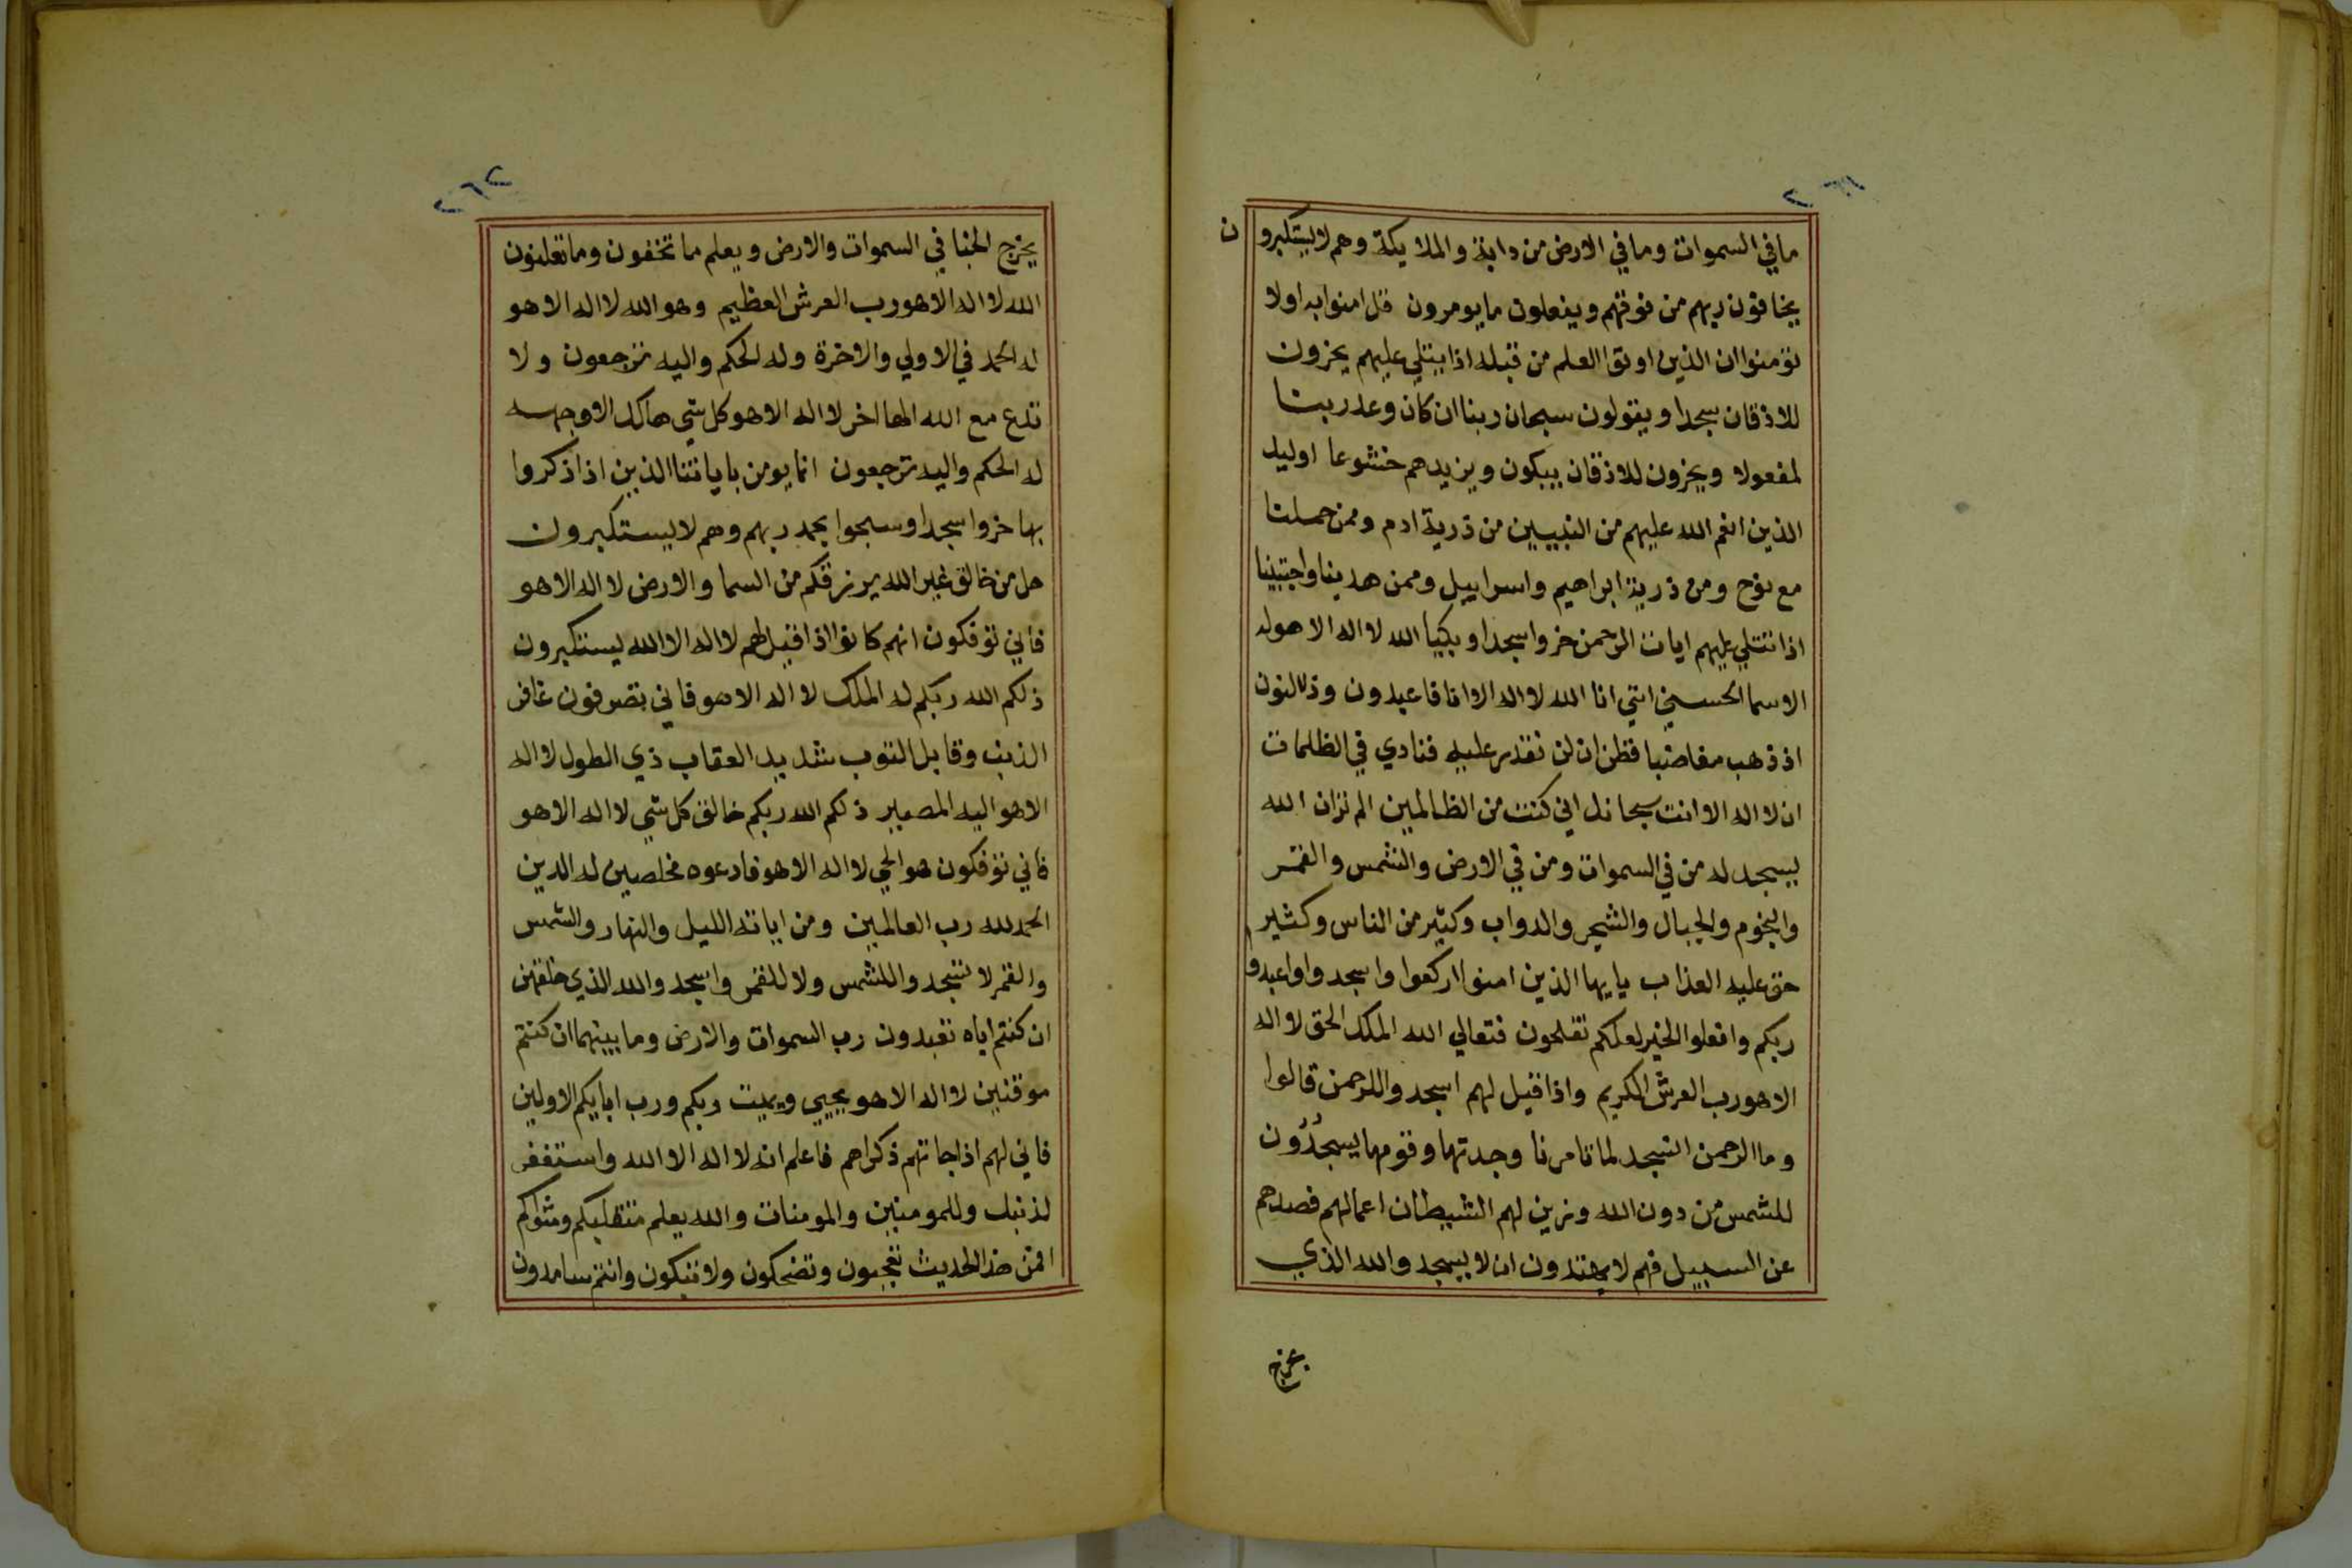 ٢٦١
ما في السموات وما في الارض من دابة والملايكة وهم لا يستكبرون
يخافون ربهم من فوقهم ويفعلون ما يومرون قل امنوا به اولا
تؤمنوا ان الذين اوتوا العلم من قبله اذا يتلي عليهم يخرون
للاذقان سجدا ويقولون سبحان ربنا ان كان وعد ربنا
لمفعولا ويخرون للاذقان يبكون ويزيدهم خشوعا اوليك
الذين انعم الله عليهم من النبيين من ذرية ادم وممن حملنا
مع نوح ومن ذرية ابراهيم واسراييل وممن هدينا واجتبينا
اذا تتلي عليهم ايات الرحمن خروا سجدا وبكيا الله لا اله الا هو له
الاسما الحسني انني انا الله لا اله الا انا فاعبدون وذالنون
اذ ذهب مغاضبا فظن ان لن نقدر عليه فنادي في الظلمات
ان لا اله الا انت سبحانك اني كنت من الظالمين الم تران الله
يسجد له من في السموات ومن في الارض والشمس والقمر
والنجوم والجبال والشجر والدواب وكثير من الناس وكثير
حق عليه العذاب يايها الذين امنوا اركعوا واسجدوا واعبدو
ربكم وافعلوا الخير لعلكم تفلحون فتعالي الله الملك الحق لا اله
الا هو رب العرش الكريم واذا قيل لهم اسجدوا للرحمن قالوا
وما الرحمن انسجد لما تامرنا وجدتها وقومها يسجدون
للشمس من دون الله وزين لهم الشيطان اعمالهم فصدهم
عن السبيل فهم لا يهتدون ان لا يسجدوا لله الذي
يخرج
٢٦٢
يخرج الخبا في السموات والارض ويعلم ما تخفون وما تعلنون
الله لا اله الا هو رب العرش العظيم وهو الله لا اله الا هو
له الحمد في الاولي والاخرة وله الحكم واليه ترجعون ولا
تدع مع الله الها اخر لا اله الا هو كل شي هالك الا وجهه
له الحكم واليه ترجعون انما يومن باياتنا الذين اذا ذكروا
بها خروا سجدا وسبحوا بحمد ربهم وهم لا يستكبرون
هل من خالق غير الله يرزقكم من السما والارض لا اله الا هو
فاني توفكون انهم كانوا اذا قيل لهم لا اله الا الله يستكبرون
ذلكم الله ربكم له الملك لا اله الا هو فاني تصرفون غافر
الذنب وقابل التوب شديد العقاب ذي الطول لا اله
الا هو اليه المصير ذلكم الله ربكم خالق كل شي لا اله الا هو
فاني توفكون هو الحي لا اله الا هو فادعوه مخلصين له الدين
الحمد لله رب العالمين ومن اياته الليل والنهار والشمس
والقمر لا تسجدوا للشمس ولا للقمر واسجدوا لله الذي خلقهن
ان كنتم اياه تعبدون رب السموات والارض وما بينهما ان كنتم
موقنين لا اله الا هو يحيي ويميت ربكم ورب ابايكم الاولين
فاني لهم اذا جاتهم ذكراهم فاعلم انه لا اله الا الله واستغفر
لذنبك وللمومنين والمومنات والله يعلم متقلبكم ومثواكم
افمن هذا الحديث تعجبون وتضحكون ولا تبكون وانتم سامدون